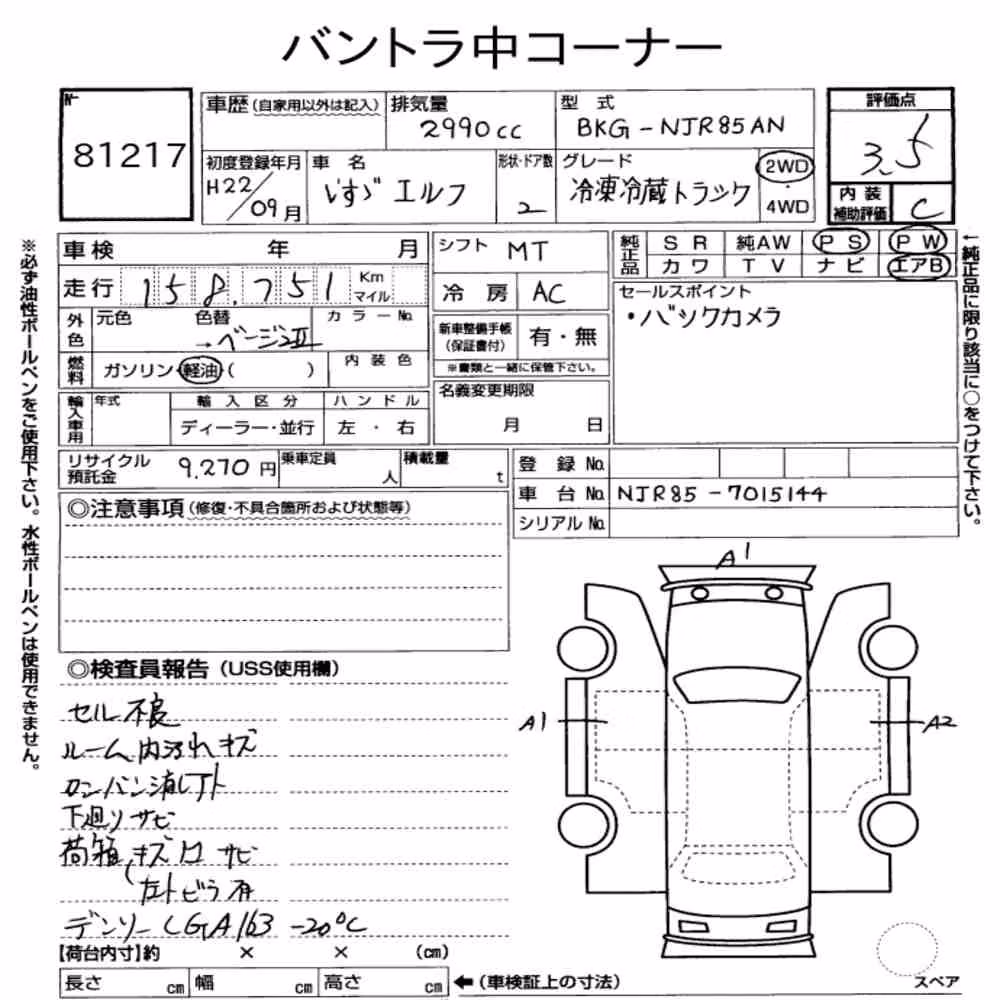 バントラ中コーナー
No
81217
車歴(自家用以外は記入)
排気量
2990cc
型 式
BKG-NJR85AN
評価点
3.5
初度登録年月
H22/09月
車 名
いすゞ エルフ
形状・ドア数
2
グレード
冷凍冷蔵トラック
2WD
・
4WD
内装
補助評価
C
※必ず油性ボールペンをご使用下さい。水性ボールペンは使用できません。
車検 年 月
シフト MT
純正品
SR 純AW PS PW
カワ TV ナビ エアB
走行 158,751 Km マイル
冷房 AC
セールスポイント
・バックカメラ
外色
元色 色替 カラーNo.
→ベージュII
新車整備手帳
(保証書付)
有・無
※書類と一緒に保管下さい。
燃料
ガソリン・軽油( )
内装色
名義変更期限
月 日
輸入車用
年式
輸入区分
ハンドル
ディーラー・並行
左・右
←純正品に限り該当に○をつけて下さい。
リサイクル
預託金
9,270円
乗車定員
人
積載量
t
登録No.
車台No. NJR85-7015144
シリアルNo.
◎注意事項(修復・不具合箇所および状態等)
A1
◎検査員報告(USS使用欄)
セル不良
ルーム内汚れキズ
カンバン消し跡
下廻りサビ
荷箱キズ凹サビ
左トビラ有
デンソー LGA163 -20℃
A1
A2
【荷台内寸】約 × × (cm)
長さ cm 幅 cm 高さ cm
←(車検証上の寸法)
スペア